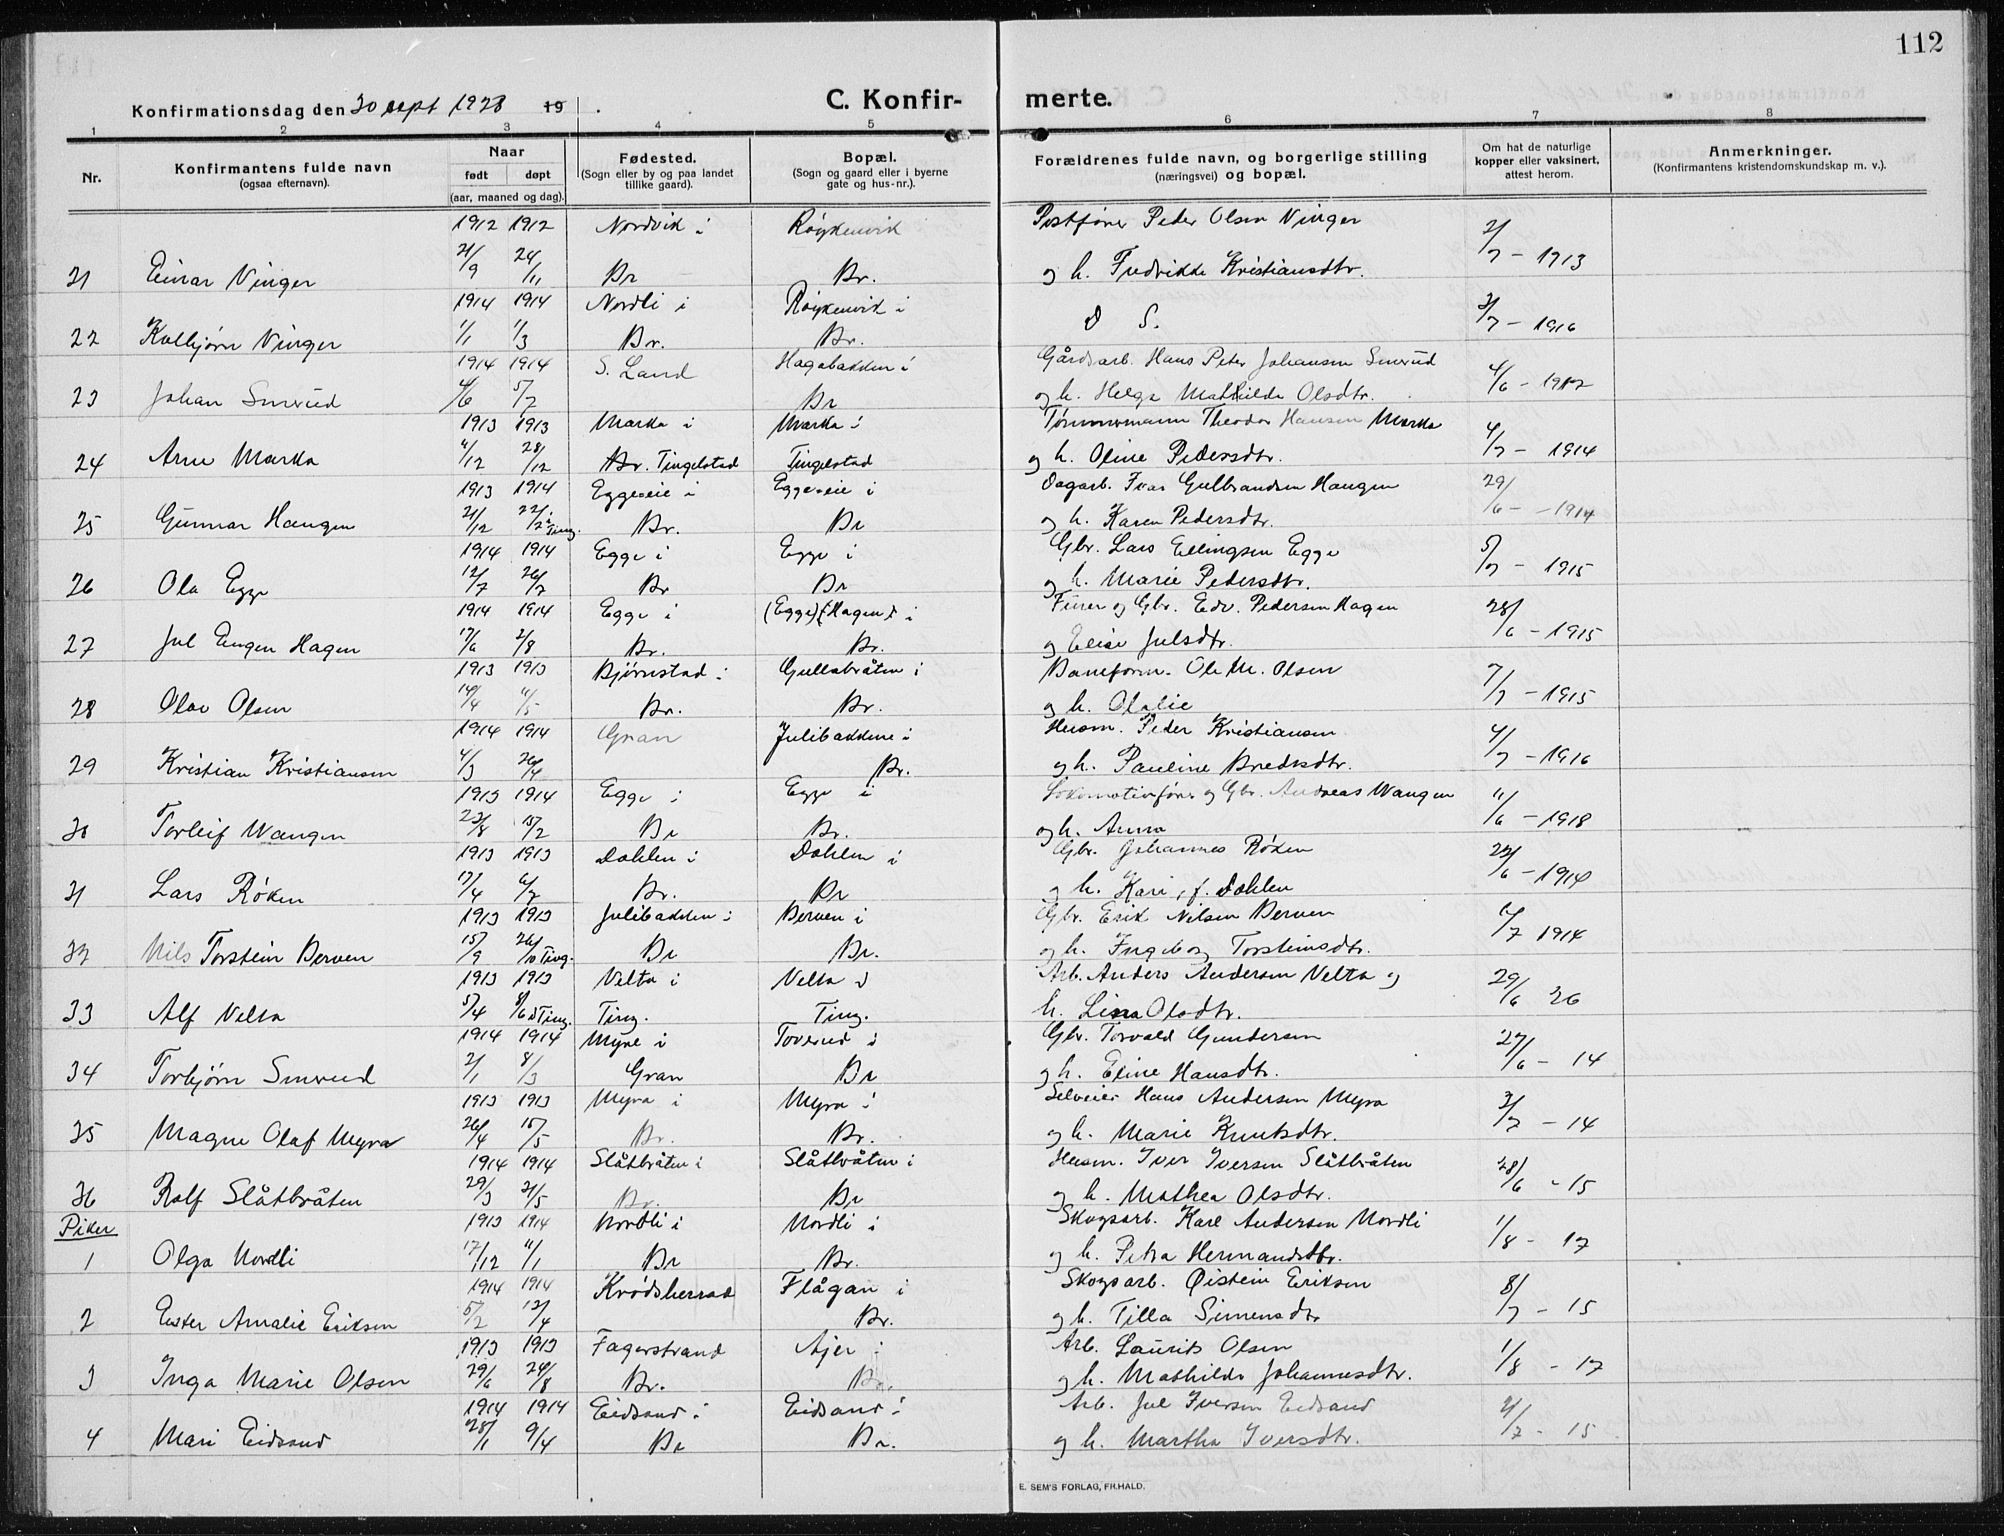 112
Konfirmationsdag den 30 sept 1928 19 .
C. Konfir- merte.
1 2 3 4 5 6 7 8
Nr.
Konfirmantens fulde navn
(ogsaa efternavn).
Naar
født døpt
(aar, maaned og dag).
Fødested.
(Sogn eller by og paa landet
tillike gaard).
Bopæl.
(Sogn og gaard eller i byerne
gate og hus-nr.).
Forældrenes fulde navn, og borgerlige stilling
(næringsvei) og bopæl.
Om hat de naturlige
kopper eller vaksinert,
attest herom.
Anmerkninger.
(Konfirmantens kristendomskundskap m. v.).
1912 1912 Nordvik i Røykenvik Postfører Peder Olsen Vinger 2/7 - 1913
21 Einar Vinger 21/9 24/11 Br Br. og h. Fredrikke Kristiansdtr.
1914 1914 Nordli i Røykenvik i 3/7 - 1916
22 Kolbjørn Vinger 1/1 1/3 Br. Br. D S.
1914 1914 S. Land Hagabakken i Gårdsarb. Hans Peter Johansen Smerud 4/6 - 1912
23 Johan Smerud 4/6 5/7 Br og h. Helga Mathilde Olsdtr.
1913 1913 Marka i Marka i Tømmermann Theodor Hansen Marka 4/7 - 1914
24 Arne Marka 4/12 28/12 Br. Tingelstad Tingelstad og h. Oline Pedersdtr.
1913 1914 Eggeeie i Eggeeie i Dagarb. Ivar Gulbrandsen Haugen 29/6 - 1914
25 Gunnar Haugen 21/12 22/2 i Ting. Br. Br og h. Karen Pedersdtr.
1914 1914 Egge i Egge i Gbr. Lars Ellingsen Egge 5/7 - 1915
26 Ola Egge 12/7 26/7 Br Br og h. Marie Pedersdtr.
1914 1914 Egge i (Egge) (Hagen) i Furer og Gbr. Edv. Pedersen Hagen 28/6 - 1915
27 Jul Eugen Hagen 17/6 2/8 Br. Br. og Elise Julsdtr.
1913 1913 Bjørnstad i Gullabråten i Baneform. Ole M. Olsen 7/7 - 1915
28 Olav Olsen 14/4 11/5 Br. Br. og h. Olalie
1914 1914 Gran Julibakkene i Husm. Peder Kristiansen 4/7 - 1916
29 Kristian Kristiansen 4/3 26/4 Br. og h. Pauline Bredesdtr.
1913 1914 Egge i Egge i Lokomotivfører og Gbr. Andreas Wangen 11/6 - 1918
30 Torleif Wangen 23/8 15/2 Br Br. og h. Anna
1913 1913 Dahlen i Dahlen i Gbr. Johannes Røken 22/6 - 1914
31 Lars Røken 17/4 6/7 Br. Br og h. Kari, f. Dahlen
1913 1913 Julibakken i Berven i Gbr. Erik Nilsen Berven 14/7 1914
32 Nils Torstein Berven 15/9 26/10 Ting. Br Br. og h. Ingeborg Torsteinsdtr.
1913 1913 Velta i Velta i Arb. Anders Andersen Velta og 29/6 26
33 Alf Velta 5/4 8/6 i Ting. Ting. Ting. h. Lina Olsdtr.
1914 1914 Myre i Toverud i Gbr. Torvald Gundersen 27/6 - 14
34 Torbjørn Smerud 2/1 8/3 Gran Br og h. Eline Hansdtr.
1913 1913 Myra i Myra i Selveier Hans Andersen Myra 3/7 - 14
35 Magne Olaf Myra 26/4 15/5 Br. Br. og h. Marie Knutsdtr.
1914 1914 Slåtbråten i Slåtbråten i Husm. Iver Iversen Slåtbråten 28/6 - 15
36 Rolf Slåtbråten 29/3 21/5 Br. Br og h. Mathea Olsdtr.
Piker 1913 1914 Nordli i Nordli i Skogsarb. Karl Andersen Nordli 1/8 - 17
1 Olga Nordli 17/12 11/1 Br Br. og h. Petra Hermansdtr.
1914 1914 Krødsherrad Flågan i Skogsarb. Øistein Eriksen 8/7 - 15
2 Ester Amalie Eriksen 5/2 13/4 Br. og h. Tilla Simensdtr
1913 1913 Fagerstrand Ajer i Arb. Laurits Olsen 1/8 - 17
3 Inga Marie Olsen 29/6 24/8 Br. Br. og h. Mathilde Johannesdtr.
1914 1914 Eidsand i Eidsand i Arb. Jul Iversen Eidsand 4/7 - 15
4 Mari Eidsand 28/1 9/4 Br Br. og h. Martha Iversdtr.
E. SEM'S FORLAG, FR.HALD.